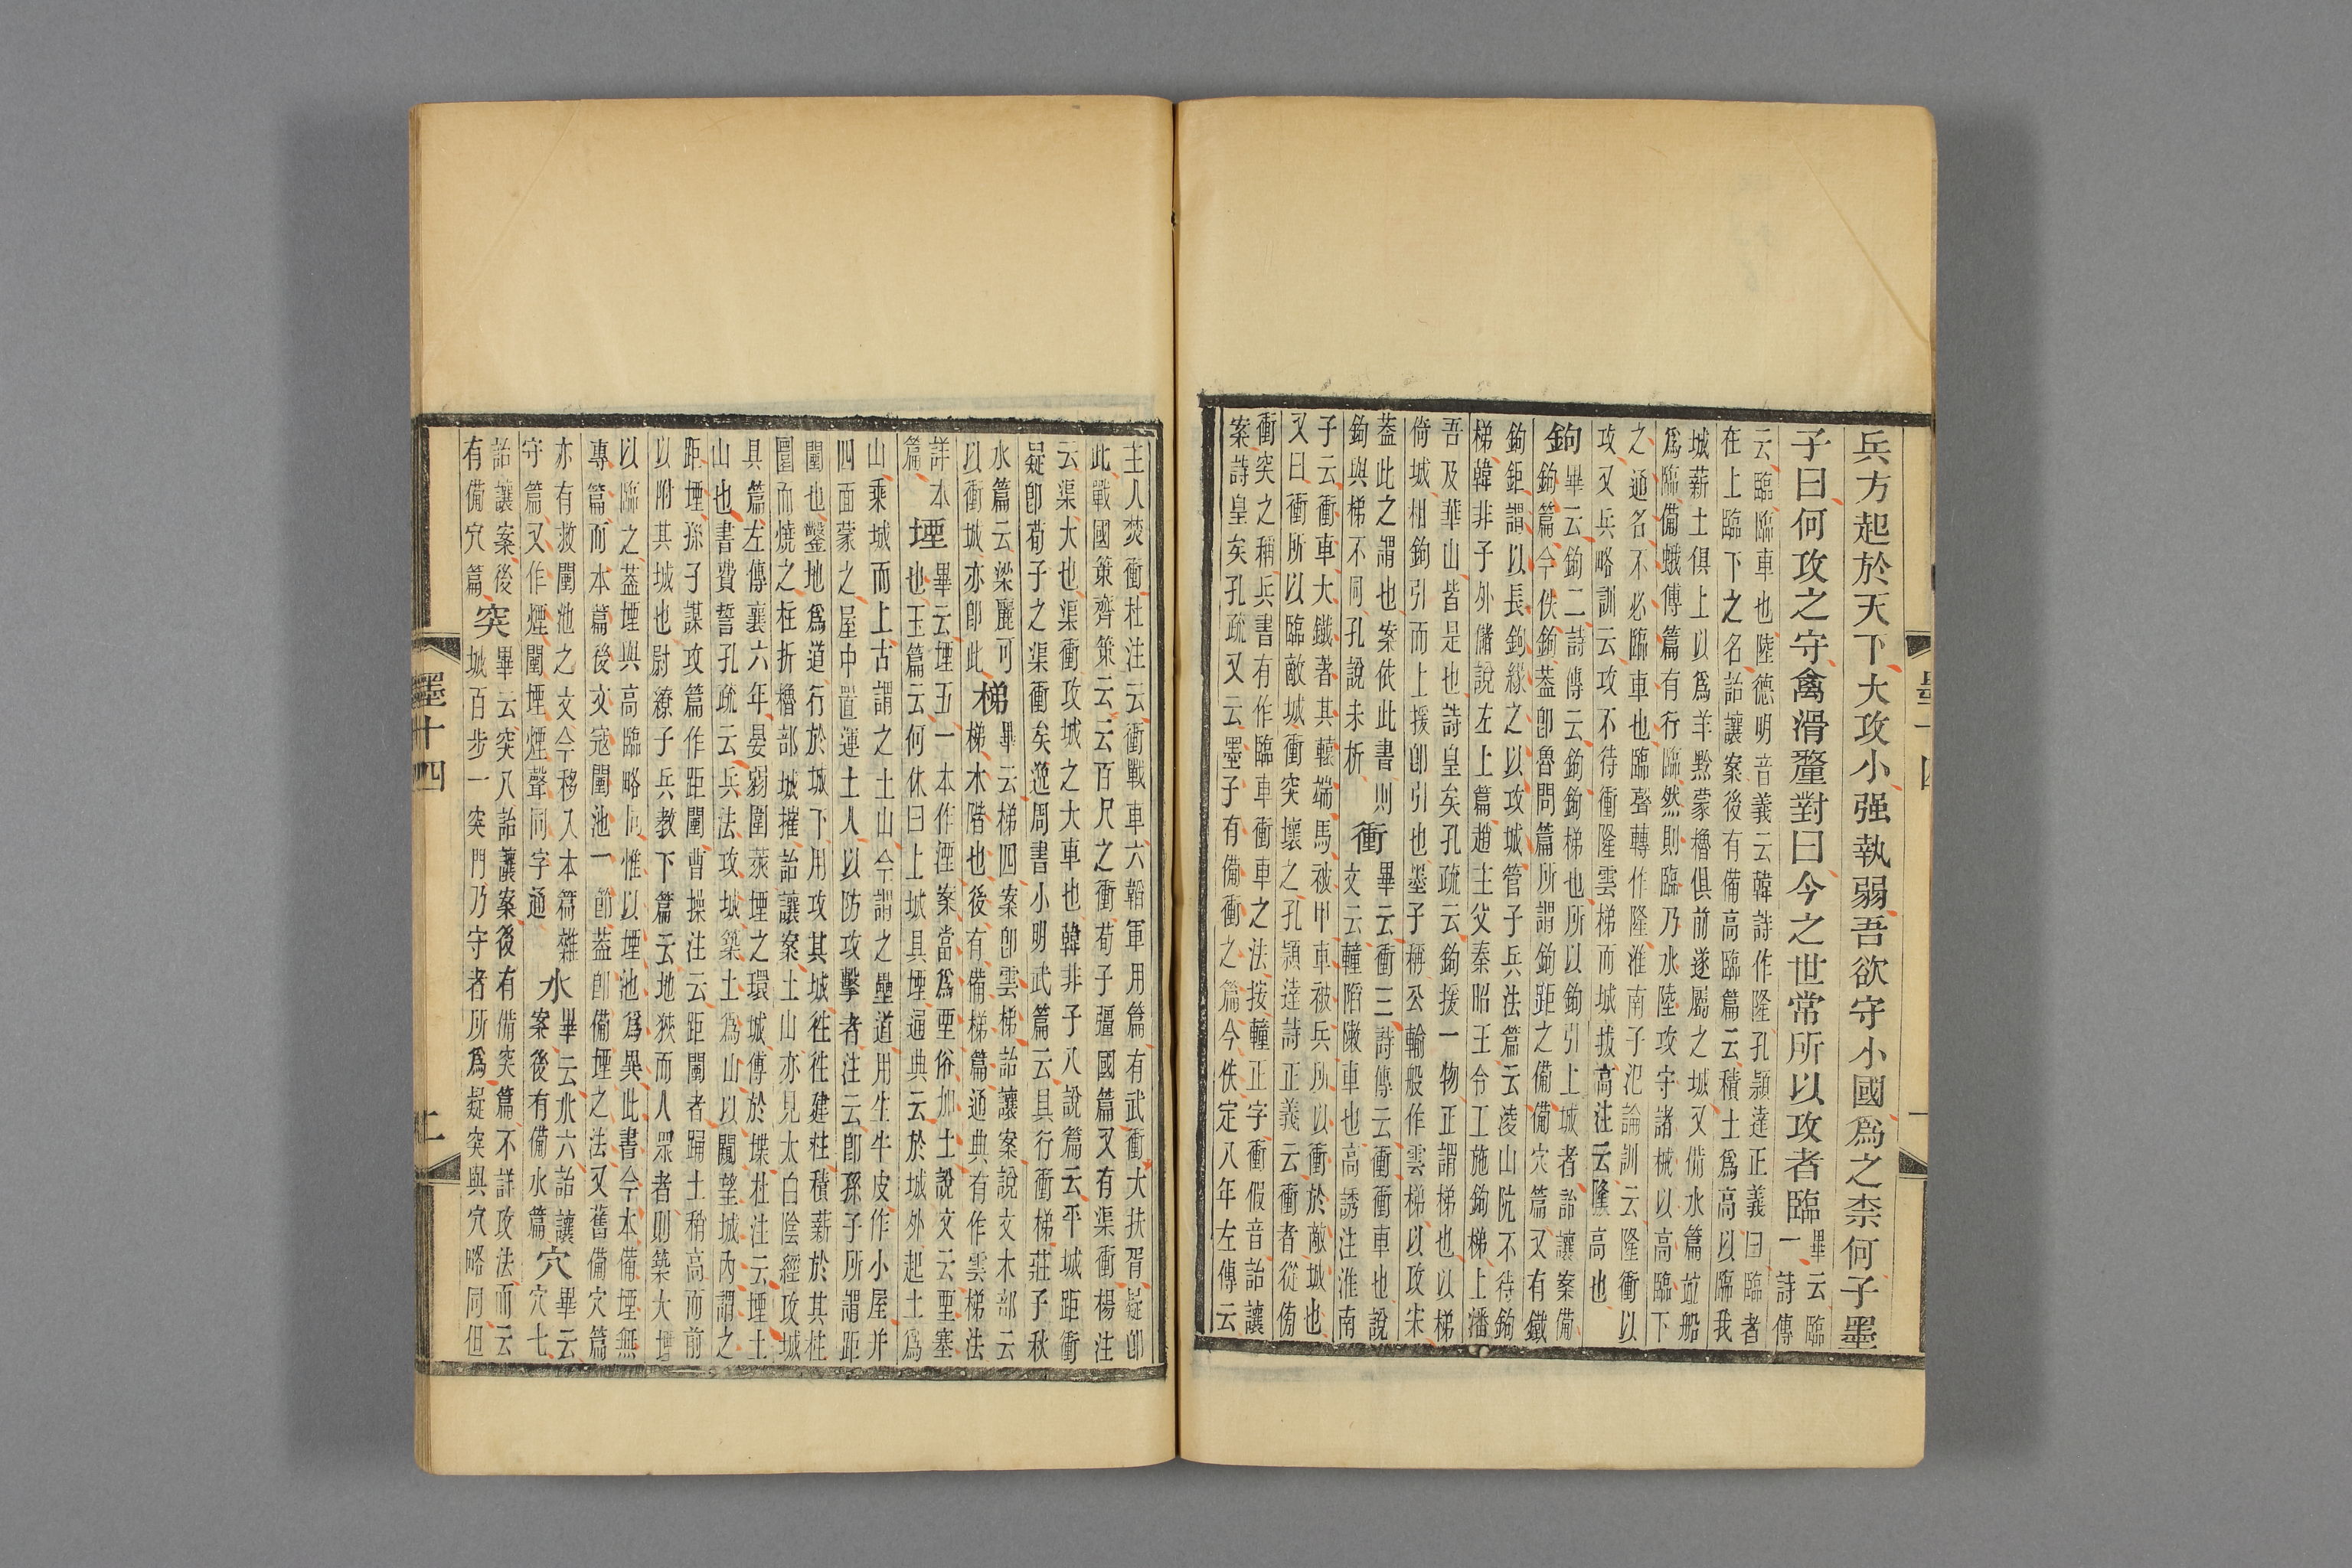 兵方起於天下大攻小强執弱吾欲守小國爲之柰何子墨
子曰何攻之守禽滑釐對曰今之世常所以攻者臨畢云臨
一詩傳
云臨臨車也陸德明音義云韓詩作隆孔穎達正義曰臨者
在上臨下之名詒讓案後有備高臨篇云積土爲高以臨我
城薪土俱上以爲羊黔蒙櫓俱前遂屬之城又備水篇竝船
爲臨備蛾傅篇有行臨然則臨乃水陸攻守諸械以高臨下
之通名不必臨車也臨聲轉作隆淮南子氾論訓云隆衝以
攻又兵略訓云攻不待衝隆雲梯而城拔高注云隆高也
鉤畢云鉤二詩傳云鉤鉤梯也所以鉤引上城者詒讓案備
鉤篇今佚鉤蓋卽魯問篇所謂鉤距之備備穴篇又有鐵
鉤鉅謂以長鉤緣之以攻城管子兵法篇云淩山阬不待鉤
梯韓非子外儲說左上篇趙主父秦昭王令工施鉤梯上潘
吾及華山皆是也詩皇矣孔疏云鉤援一物正謂梯也以梯
倚城相鉤引而上援卽引也墨子稱公輸般作雲梯以攻宋
蓋此之謂也案依此書則
鉤與梯不同孔說未析
衝畢云衝三詩傳云衝衝車也說
文云䡴陷敶車也高誘注淮南
子云衝車大鐵著其轅端馬被甲車被兵所以衝於敵城也
又曰衝所以臨敵城衝突壞之孔穎達詩正義云衝者從㑃
衝突之稱兵書有作臨車衝車之法按䡴正字衝假音詒讓
案詩皇矣孔疏又云墨子有備衝之篇今佚定八年左傳云
主人焚衝杜注云衝戰車六韜軍用篇有武衝大扶胥疑卽
此戰國策齊策云云百尺之衝荀子彊國篇又有渠衝楊注
云渠大也渠衝攻城之大車也韓非子八說篇云平城距衝
疑卽荀子之渠衝矣逸周書小明武篇云具行衝梯莊子秋
水篇云梁麗可
以衝城亦卽此
梯畢云梯四案卽雲梯詒讓案說文木部云
梯木階也後有備梯篇通典有作雲梯法
詳本
篇
堙畢云堙五一本作湮案當爲垔俗加土說文云垔塞
也玉篇云何休曰上城具堙通典云於城外起土爲
山乘城而上古謂之土山今謂之壘道用生牛皮作小屋并
四面蒙之屋中置運土人以防攻擊者注云卽孫子所謂距
闉也鑿地爲道行於城下用攻其城往往建柱積薪於其柱
圜而燒之柱折櫓部城摧詒讓案土山亦見太白陰經攻城
具篇左傳襄六年晏弱圍萊堙之環城傅於堞杜注云堙土
山也書費誓孔疏云兵法攻城築土爲山以闚望城內謂之
距堙孫子謀攻篇作距闉曹操注云距闉者踊土稍高而前
以附其城也尉繚子兵教下篇云地狹而人眾者則築大堙
以臨之蓋堙與高臨略同惟以堙池爲異此書今本備堙無
專篇而本篇後文寇闉池一節蓋卽備堙之法又舊備穴篇
亦有救闉池之文今移入本篇雜
守篇又作煙闉堙煙聲同字通
水畢云水六詒讓
案後有備水篇
穴畢云
穴七
詒讓案後
有備穴篇
突畢云突八詒讓案後有備突篇不詳攻法而云
城百步一突門乃守者所爲疑突與穴略同但
墨十四